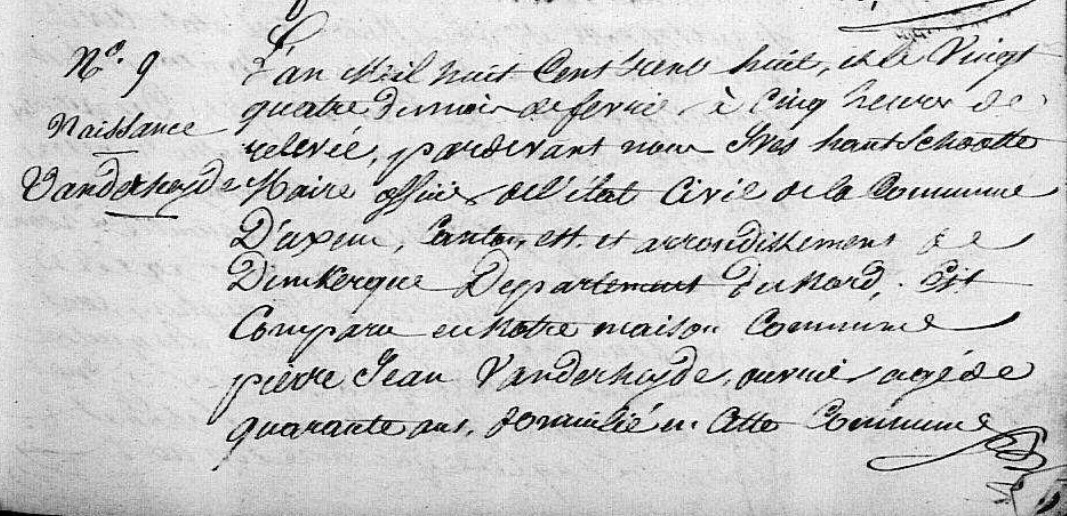 N.o 9
Naissance
Vanderheyde
L'an Mil huit Cent trente huit, et le Vingt
quatre du mois de fevrier, à Cinq heures de
relevée, pardevant nous Yves hautSchootte
Maire officier de l'état Civil de la Commune
D'axem, Canton est. et arrondissement de
Dunkerque Departement du Nord, Est
Comparu en notre maison Commune
pierre Jean Vanderheyde, ouvrier agé de
quarante ans, domicilié en Cette Commune